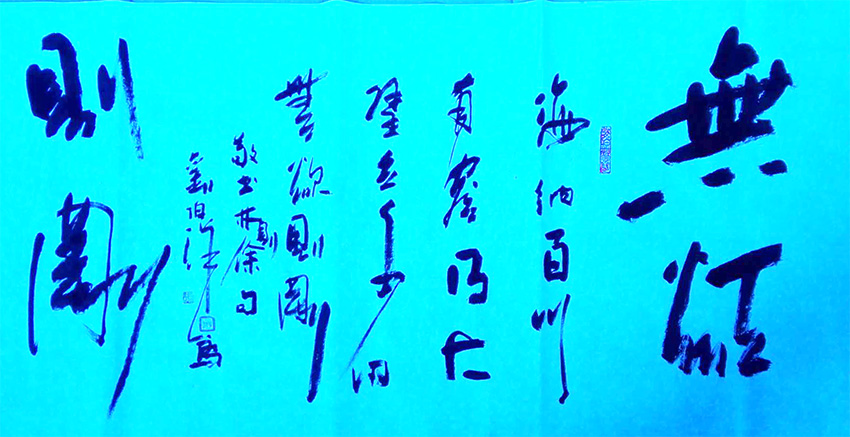 無
海納百川
有容乃大
壁立千仞
無欲則剛
敬书林則徐句
劉伯
則剛